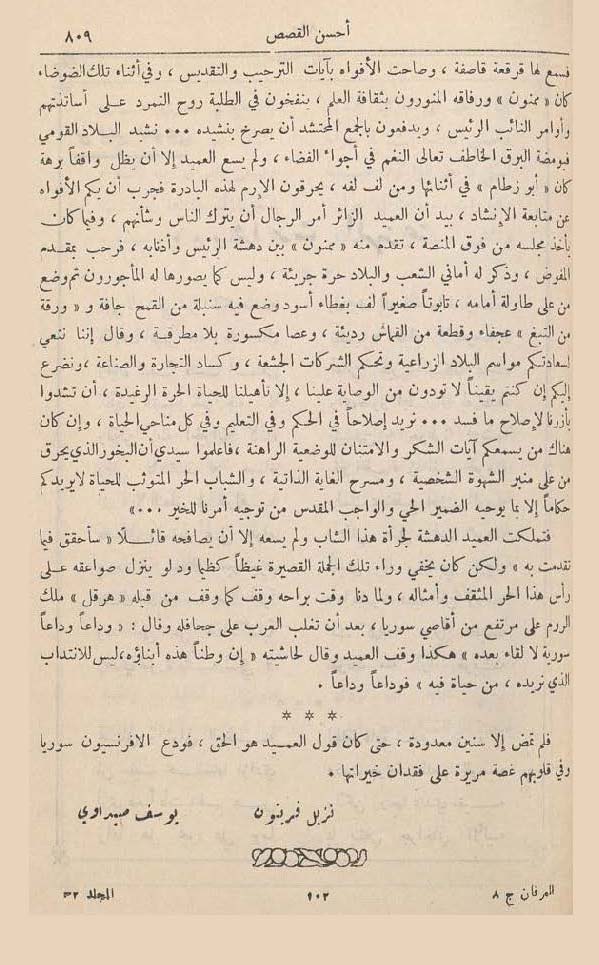 أحسن القصص
٨٠٩
فسمع لها قرقعة قاصفة ، وصاحت الأفواه بآيات الترحيب والتقديس ، وفي أثناء تلك الضوضاء
كان « ممنون » ورفاقه المنورون بثقافة العلم ، ينفخون في الطلبة روح التمرد على أساتذتهم
وأوامر النائب الرئيس ، ويدفعون بالجمع المحتشد أن يصرخ بنشيده ... نشيد البلاد القومي
فبومضة البرق الخاطف تعالى النغم في أجواء الفضاء ، ولم يسع العميد إلا أن يظل واقفاً برهة
كان « أبو زطام » في أثنائها ومن لف لفه ، يحرقون الإرم لهذه البادرة فجرب أن يكم الأفواه
عن متابعة الإنشاد ، بيد أن العميد الزائر أمر الرجال أن يترك الناس وشأنهم ، وفيما كان
يأخذ مجلسه من فوق المنصة ، تقدم منه « ممنون » بين دهشة الرئيس وأذنابه ، فرحب بمقدم
المفوض ، وذكر له أماني الشعب والبلاد حرة جريئة ، وليس كما يصورها له المأجورون ثم وضع
من على طاولة أمامه ، تابوتاً صغيراً لف بغطاء أسود وضع فيه سنبلة من القمح جافة و « ورقة
من التبغ » عجفاء وقطعة من القماش رديئة ، وعصا مكسورة بلا مطرقة ، وقال إننا ننعي
لسعادتكم مواسم البلاد الزراعية وتحكم الشركات الجشعة ، وكساد التجارة والصناعة ، ونضرع
إليكم إن كنتم يقيناً لا تودون من الوصاية علينا ، إلا تأهيلنا للحياة الحرة الرغيدة ، أن تشدوا
بأزرنا لإصلاح ما فسد ... نريد إصلاحاً في الحكم وفي التعليم وفي كل مناحي الحياة ، وإن كان
هناك من يسمعكم آيات الشكر والامتنان للوضعية الراهنة ، فاعلموا سيدي أن البخور الذي يحرق
من على منبر الشهوة الشخصية ، ومسرح الغاية الذاتية ، والشباب الحر المتوثب للحياة لا يريدكم
حكاماً إلا بما يوحيه الضمير الحي والواجب المقدس من توجيه أمرنا للخير ... »
فتملكت العميد الدهشة لجرأة هذا الشاب ولم يسعه إلا أن يصافحه قائلاً « سأحقق فيما
تقدمت به » ولكن كان يخفي وراء تلك الجملة القصيرة غيظاً كظيما ود لو ينزل صواعقه على
رأس هذا الحر المثقف وأمثاله ، ولما دنا وقت براحه وقف كما وقف من قبله « هرقل » ملك
الروم على مرتفع من أقاصي سوريا ، بعد أن تغلب العرب على جحافله وقال : « وداعاً وداعاً
سورية لا لقاء بعده » هكذا وقف العميد وقال لحاشيته « إن وطناً هذه أبناؤه ، ليس للانتداب
الذي نريده ، من حياة فيه » فوداعاً وداعاً .
* * *
فلم تمض إلا سنين معدودة ، حتى كان قول العميد هو الحق ، فودع الافرنسيون سوريا
وفي قلوبهم غصة مريرة على فقدان خيراتها .
نزيل فريتون
يوسف صيداوي
العرفان ج ٨
١٠٢
المجلد ٣٢